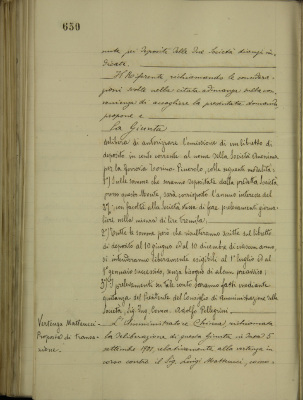 650
nuta pei depositi delle due Società dianzi in-
dicate.
Il Riferente richiamando le considera-
zioni svolte nella citata adunanza sulla con-
venienza di accogliere la predetta domanda
propone e
La Giunta
delibera di autorizzare l'emissione di un libretto di
deposito in conto corrente al nome della Società Anonima
per la ferrovia Torino-Pinerolo, colle seguenti modalità:
1°) Sulle somme che saranno depositate dalla predetta Società
presso questo Monte, sarà corrisposto l'annuo interesse del
con facoltà alla Società stessa di fare prelevamenti giorna-
lieri nella misura di lire tremila;
2°) Tutte le somme poi che risulteranno scritte sul libretto
di deposito al 10 giugno ed al 10 dicembre di ciascun anno,
si intenderanno liberamente esigibili al 1° luglio ed al
1° gennaio successivo, senza bisogno di alcun preavviso;
3°) I prelevamenti in tale conto saranno fatti mediante
quitanza del Presidente del Consiglio di Amministrazione della
Società, Sig. Adolfo Pellegrini.
Vertenza Matteucci - L'Amministratore richiamata
Proposta di transa- la deliberazione di questa Giunta in data 5
zione. settembre relativamente alla vertenza in
corso contro il Sig. Luigi Matteucci,